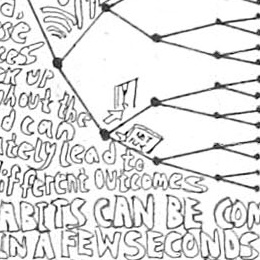 d,
ck up
hout the
d can
ately lead to
ifferent outcomes
ABITS CAN BE COM
IN A FEW SECONDS